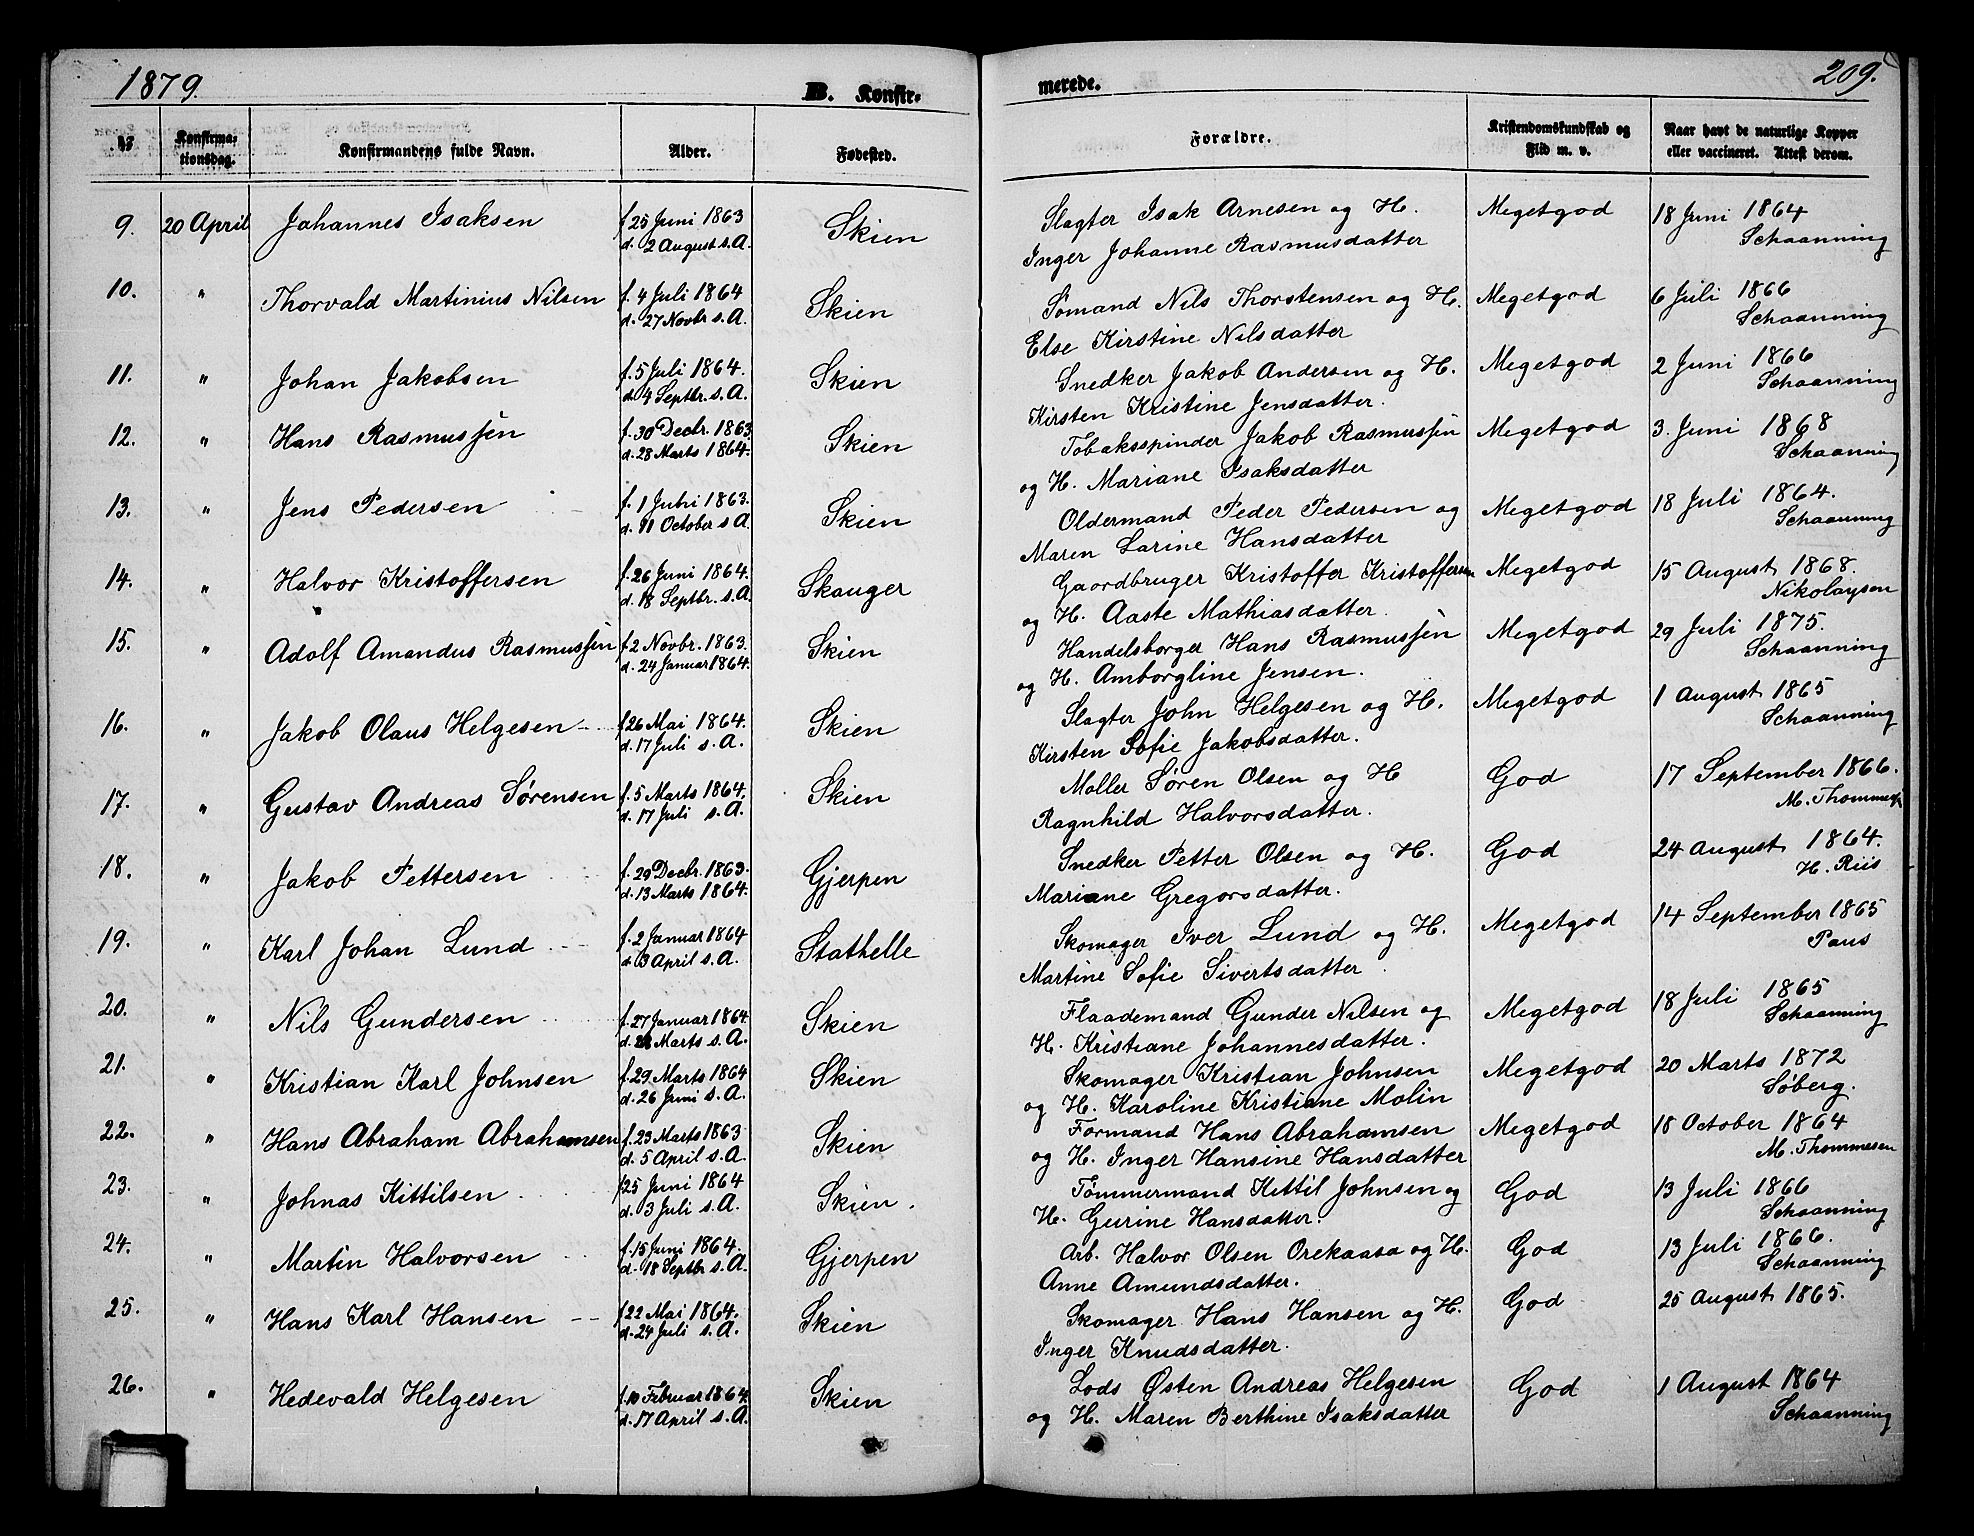 1879. B. Konfir- merede. 209.
№ Konfirma-tionsdag. Konfirmandens fulde Navn. Alder. Fødested. Forældre. Kristendomskundskab og Flid m. v. Naar havt de naturlige Kopper eller vaccineret. Attest derom.
9. 20 April Johannes Isaksen f. 25 Juni 1863 Skien Slagter Isak Arnesen og H. Megetgod 18 Juni 1864
d. 2 August s. A. Inger Johanne Rasmusdatter Schaanning
10. " Thorvald Martinius Nilsen f. 4 Juli 1864 Skien Sømand Nils Thorstensen og H. Megetgod 6 Juli 1866
d. 27 Novbr s. A. Else Kirstine Nilsdatter Schaanning
11. " Johan Jakobsen f. 5 Juli 1864. Skien Snedker Jakob Andersen og H. Megetgod 2 Juni 1866
d. 4 Septbr. s. A. Kirsten Kristine Jensdatter. Schaanning
12. " Hans Rasmussen f. 30 Decbr. 1863 Skien Tobaksspinder Jakob Rasmussen Megetgod 3. Juni 1868
d. 28 Marts 1864. og H. Mariane Isaksdatter Schaanning
13. " Jens Pedersen f. 1 Juni 1863. Skien Oldermand Peder Pedersen og Megetgod 18 Juli 1864.
d. 11 October s A. Maren Larine Hansdatter Schaanning
14. " Halvor Kristoffersen f. 26 Juni 1864. Skauger Gaardbruger Kristoffer Kristoffersen Megetgod 15 August 1868.
d. 18 Septbr. s. A. og H. Aaste Mathiasdatter. Nikolaysen
15. " Adolf Amandus Rasmussen f. 2 Novbr. 1863. Skien Handelsborger Hans Rasmussen Megetgod 29 Juli 1875.
d. 24 Januar 1864. og H. Amborgline Jensen. Schaanning
16. " Jakob Olaus Helgesen f 26 Mai 1864. Skien Slagter John Helgesen og H. Megetgod 1 August 1865
d. 17 Juli s. A. Kirsten Sofie Jakobsdatter. Schaanning
17. " Gustav Andreas Sørensen f. 5 Marts 1864. Skien Møller Søren Olsen og H God 17 September 1866.
d. 17 Juli s. A. Ragnhild Halvorsdatter. M. Thommesen
18. " Jakob Pettersen f. 29 Decbr. 1863. Gjerpen Snedker Petter Olsen og H. God 24 August 1864.
d. 13 Marts 1864. Mariane Gregorsdatter. H. Riis
19. " Karl Johan Lund f. 2 Januar 1864 Stathelle Skomager Iver Lund og H. Megetgod 14 September 1865
d 3 April s. A. Martine Sofie Sivertsdatter. Paus
20. " Nils Gundersen f. 27 Januar 1864. Skien Flaademand Gunder Nilsen og Megetgod 18 Juli 1865
d. Marts s. A. H. Kristiane Johannesdatter. Schaanning
21. " Kristian Karl Johnsen f. 29 Marts 1864 Skien Skomager Kristian Johnsen Megetgod 20 Marts 1872
d. 26 Juni s. A. og H. Karoline Kristiane Molin Søberg.
22. " Hans Abraham Abrahamsen f. 23 Marts 1863 Skien Formand Hans Abrahamsen Megetgod 18 October 1864
d. 5 April s. A. og H. Inger Hansine Hansdatter M. Thommesen
23. " Johnas Kittilsen f 25 Juni 1864 Skien. Tømmermand Kittil Johnsen og God 13 Juli 1866
d. 3 Juli s. A. H. Gurine Hansdatter. Schaanning
24. " Martin Halvorsen f. 15 Juni 1864. Gjerpen Arb. Halvor Olsen Orekaasa og H. God 13 Juli 1866.
d. 18 Septbr s. A. Anne Amundsdatter. Schaanning
25. " Hans Karl Hansen f 22 Mai 1864. Skien Skomager Hans Hansen og H. God 25 August 1865.
d. 24 Juli s. A. Inger Knudsdatter.
26. " Hedevald Helgesen f. 10 Februar 1864. Skien Lods Østen Andreas Helgesen God 1 August 1864
d. 17 April s. A. og H. Maren Berthine Isaksdatter Schaanning